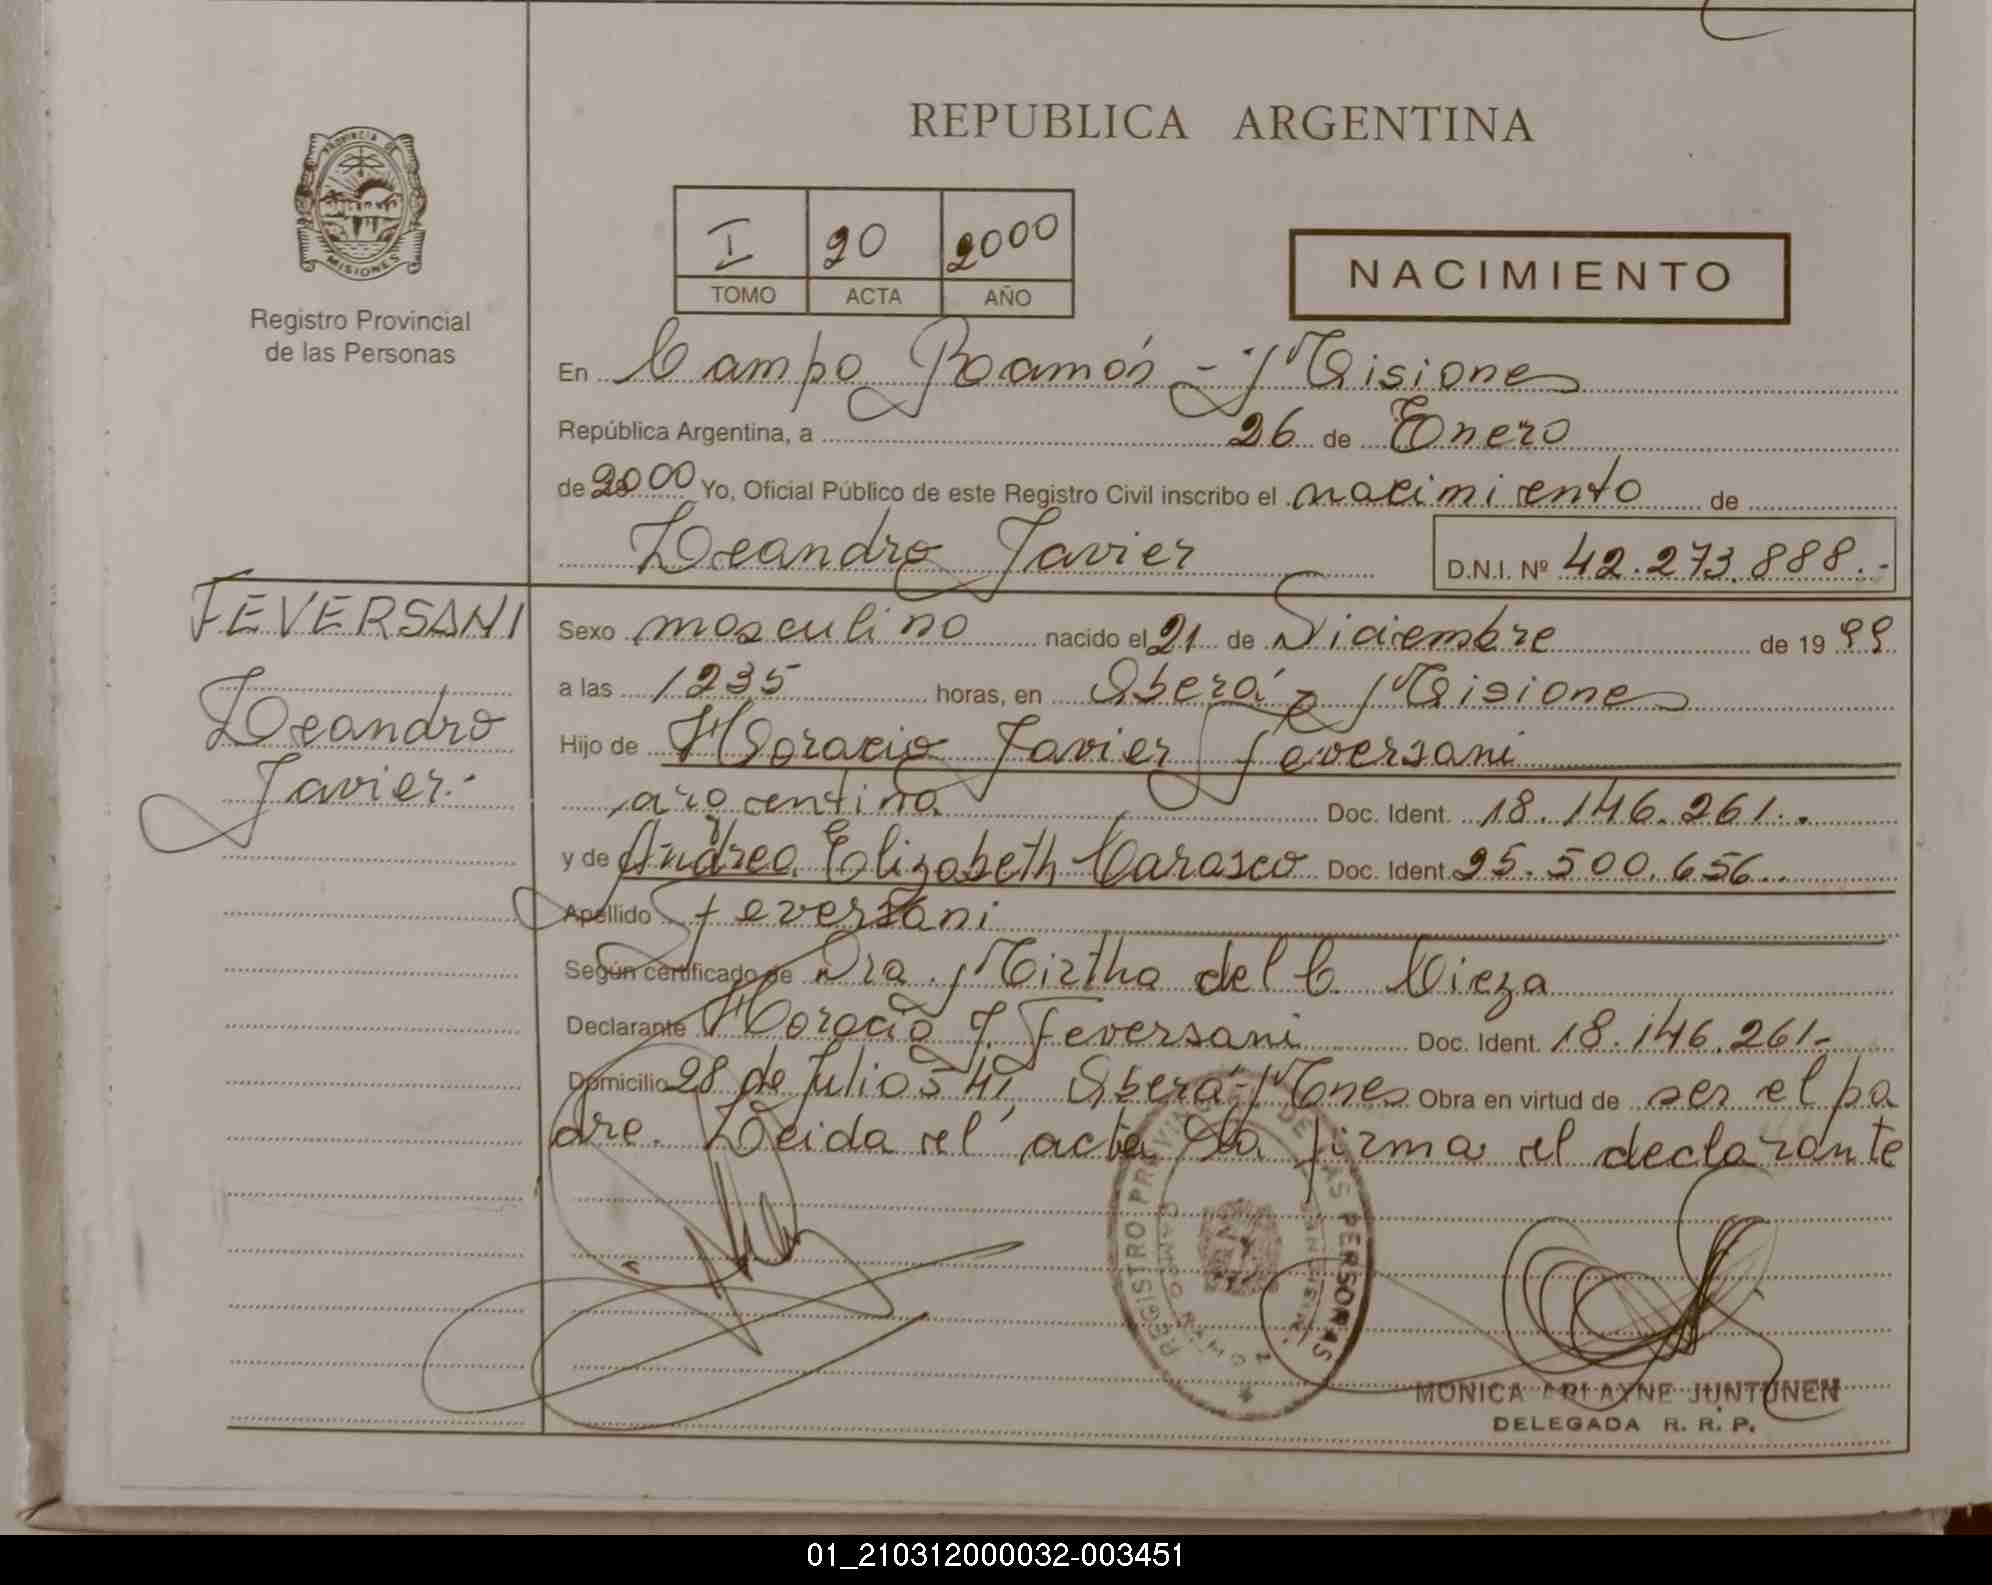 PROVINCIA DE
MISIONES
Registro Provincial
de las Personas
REPUBLICA ARGENTINA
I 20 2000
TOMO ACTA AÑO
NACIMIENTO
En Campo Ramón - Misiones
República Argentina, a 26 de Enero
de 2000 Yo, Oficial Público de este Registro Civil inscribo el nacimiento de
Leandro Javier D.N.I. Nº 42.273.888.-
FEVERSANI
Leandro
Javier.-
Sexo masculino nacido el 21 de Diciembre de 19 99
a las 1235 horas, en Oberá, Misiones
Hijo de Horacio Javier Feversani
argentina Doc. Ident. 18.146.261..
y de Andrea Elizabeth Carasco Doc. Ident. 25.500.656..
Apellido Feversani
Según certificado de Dra. Mirtha del C. Cieza
Declarante Horacio J. Feversani Doc. Ident. 18.146.261-
Domicilio 28 de Julio 541, Oberá-Mnes Obra en virtud de ser el pa
dre. Leida el acta la firma el declarante
REGISTRO PROVINCIAL DE LAS PERSONAS
CAMPO RAMON
MONICA ARLAYNE JUNTUNEN
DELEGADA R. R. P.
01_210312000032-003451